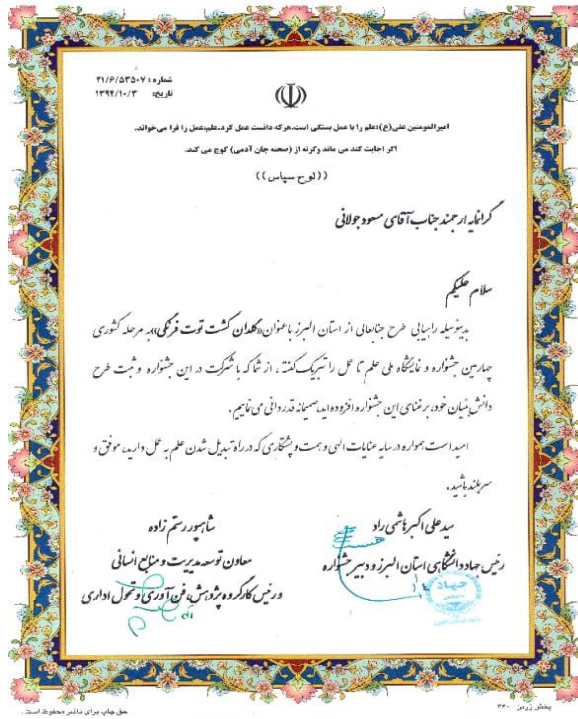 شماره: ۲۱/۶/۵۳۵۰۷
تاریخ: ۱۳۹۲/۱۰/۳
امیرالمومنین علی(ع):علم را با عمل بستگی است.هرکه دانست عمل کرد.علم،عمل را فرا می‌خواند.
اگر اجابت کند می ماند وگرنه از (صحنه جان آدمی) کوچ می کند.
((لوح سپاس))
گرانمایه ارجمند جناب آقای مسعود جولانی
سلام علیکم
بدینوسیله راهیابی طرح جنابعالی از استان البرز با عنوان «گلدان کشت توت فرنگی» به مرحله کشوری
چهارمین جشنواره و نمایشگاه ملی علم تا عمل را تبریک گفته، از شما که با شرکت در این جشنواره و ثبت طرح
دانش بنیان خود، بر غنای این جشنواره افزوده اید، صمیمانه قدردانی می نماییم.
امید است همواره در سایه عنایات الهی و همت و پشتکاری که در راه تبدیل شدن علم به عمل دارید، موفق و
سربلند باشید.
سید علی اکبر هاشمی راد
رئیس جهاد دانشگاهی استان البرز و دبیر جشنواره
شاهپور رستم زاده
معاون توسعه مدیریت و منابع انسانی
و رئیس کارگروه پژوهش، فن آوری و تحول اداری
جهاد
پخش زرین ۳۶۰
حق چاپ برای ناشر محفوظ است